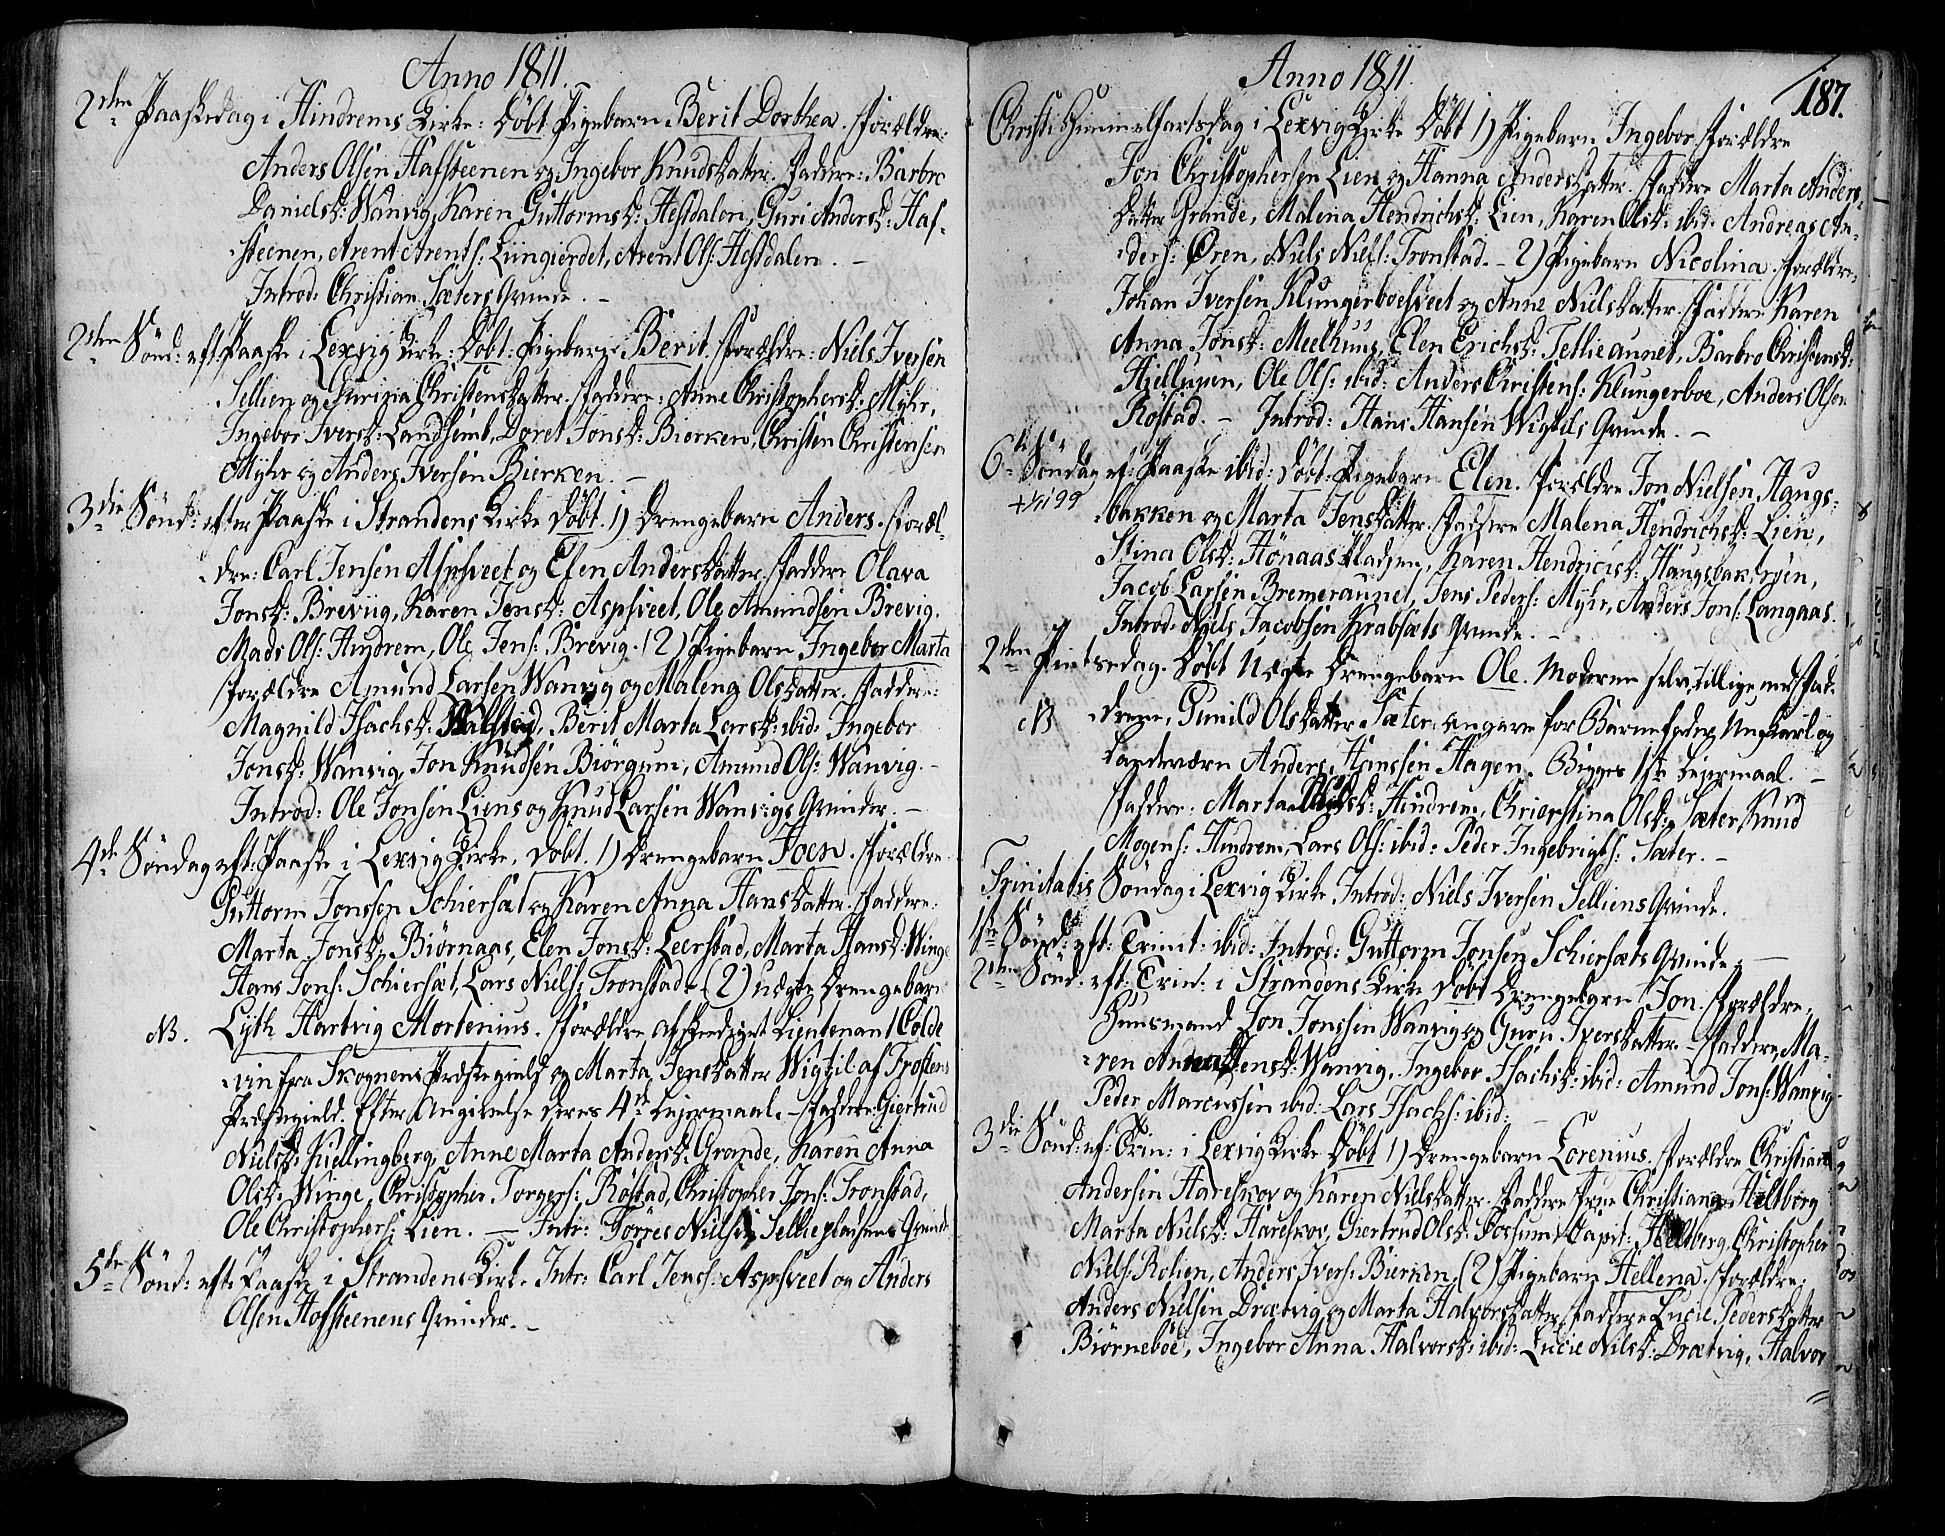 Anno 1811.
2den Paaskedag i Hindrems Kirke: Döbt Pigebarn Berit Dorthea. Forældre:
Anders Olsen Hafsteenen og Ingebor Knudsdatter. Faddere: Barbro
Danielsd: Wanvig, Karen Guttormsd: Hestdalen, Guri Andersd: Haf-
steenen, Arent Arents: Liingierdet, Arent Ols: Hestdalen. -
Introd: Christian Sæters Qvinde. -
2den Sönd: eft: Paaske i Lexvig Kirke: Döbt: Pigebarn Berit. Forældre: Niels Iversen
Sellien og Gurina Christensdatter. Faddere: Anne Christophersd: Myhr,
Ingebor Iversd: Landsemb, Doret Jonsd: Bierken, Christen Christensen
Myhr og Anders Iversen Bierken. -
3die Sönd: efter Paaske i Strandens Kirke Döbt. 1) Drengebarn Anders. Foræl-
dre: Carl Jensen Aspsveet og Elen Andersdatter. Faddere Olava
Jonsd: Breviig, Karen Jensd: Aspsveet, Ole Amundsen Brevig,
Mads Ols: Hindrem, Ole Jens: Brevig. (2) Pigebarn Ingebor Marta
Forældre Amund Larsen Wanvig og Malena Olsdatter. Faddere:
Magnild Isachsd: , Berit Marta Larsd: ibid: Ingebor
Jonsd: Wanvig, Jon Knudsen Biörgum, Amund Ols: Wanvig. -
Introd: Ole Jonsen Liens og Knud Larsen Wanvigs Qvinder. -
4de Söndag eft: Paaske i Lexvig Kirke. Döbt. 1) Drengebarn Joen. Forældre
Guttorm Jonssen Schiersæt og Karen Anna Hansdatter. Faddere:
Marta Jonsd: Biörnaas, Elen Jonsd: Leerstad, Marta Hansd: Winge
Hans Jons: Schiersæt, Lars Niels: Tronstad. (2) uægte Drengebarn
NB. Lyth Hartvig Mortenius. Forældre afskediget Lieutenant Colde
vin fra Skognens Præstegield og Marta Jensdatter Wigtil af Frostens
Præstegield. Efter Angivelse deres 4de Leiermaal. - Faddere: Giertrud
Nielsd: Kiellingberg, Anne Marta Andersd: Grande, Karen Anna
Olsd: Winge, Christopher Torgers: Röstad, Christopher Jons: Tronstad,
Ole Christophers: Lien. - Intr: Törres Nielsen Selliepladsens Qvinde
5te Sönd: eft: Paaske i Strandens Kirke Intr: Carl Jens: Aspsveet og Anders
Olsen Hafsteenens Qvinder. -
Anno 1811.
187.
Christi Himmelfartsdag i Lexvig Kirke Döbt 1) Pigebarn Ingebor. Forældre
Jon Christophersen Lien og Hanna Andersdatter. Faddere Marta Anders-
datter Grande, Malena Hendrichsd: Lien, Karen Olsd: ibid: Andreas An-
ders: Ören, Niels Niels: Tronstad. - 2) Pigebarn Nicolina. Forældre:
Johan Iversen Klungerboesveet og Anne Nielsdatter. Faddere Karen
Anna Jonsd: Meelhuus, Elen Erichsd: Tettieaunet, Barbro Christensd:
Hiellupen, Ole Ols: ibid: Anders Christens: Klungerboe, Anders Olsen
Röstad. - Introd: Hans Hansen Wigtils Qvinde. -
6te Söndag ef: Paaske ibid: Döbt: Pigebarn Elen. Forældre Jon Nielsen Haugs-
bakken og Marta Jensdatter. Faddere Malena Hendrichsd: Lien,
Stina Olsd: Hönaaspladsen, Karen Hendrichsd: Haugsbak,
Jacob Larsen Bremeraunet, Jens Peders: Myhr, Anders Jons: Langaas.
Introd: Niels Jacobsen Krabsæts Qvinde. -
2den Pintsedag. Döbt Uægte Drengebarn Ole. Moderen selv, tillige med Fad-
NB drene, Gunild Olsdatter Sæter angave for Barnefader Ungkarl og
Landværn Anders Hanssen Hagen. Begges 1ste Leiermaal. -
Faddere: Marta Hindrem, Christina Olsd: Sæter, Knud
Mogens: Hindrem, Lars Ols: ibid: Peder Ingebrigts: Sæter. -
Trinitatis Söndag i Lexvig Kirke Introd: Niels Iversen Selliens Qvinde.
1ste Sönd: eft: Trinit: ibid: Introd: Guttorm Jonsen Schiersæts Qvinde. -
2den Sönd: eft: Trin: i Strandens Kirke Döbt Drengebarn Jon. Forældre:
Huusmand Jon Jonssen Wanvig og Guru Iversdatter. - Faddere, Ma-
ren Jensd: Wanvig, Ingebor Isachsd: ibid: Amund Jons: Wanvig
Peder Marcussen ibid: Lars Isachs: ibid: -
3die Sönd: ef: Trin: i Lexvig Kirke Döbt 1) Drengebarn Lorenius. Forældre Christian
Andersen Hareskov og Karen Nielsdatter. Faddere Frue Christiane Heltberg
Marta Nielsd: Hareskov, Giertrud Olsd: Fossum, Capit: Heltberg, Christopher
Niels: Rolien, Anders Ivers: Bierken. (2) Pigebarn Hellena. Forældre:
Anders Nielsen Drætvig og Marta Halvorsdatter. Faddere Lucie Pedersdatter
Biörneböe, Ingebor Anna Halvorsd: ibid: Lucie Nilsd: Drætvig, Halvor